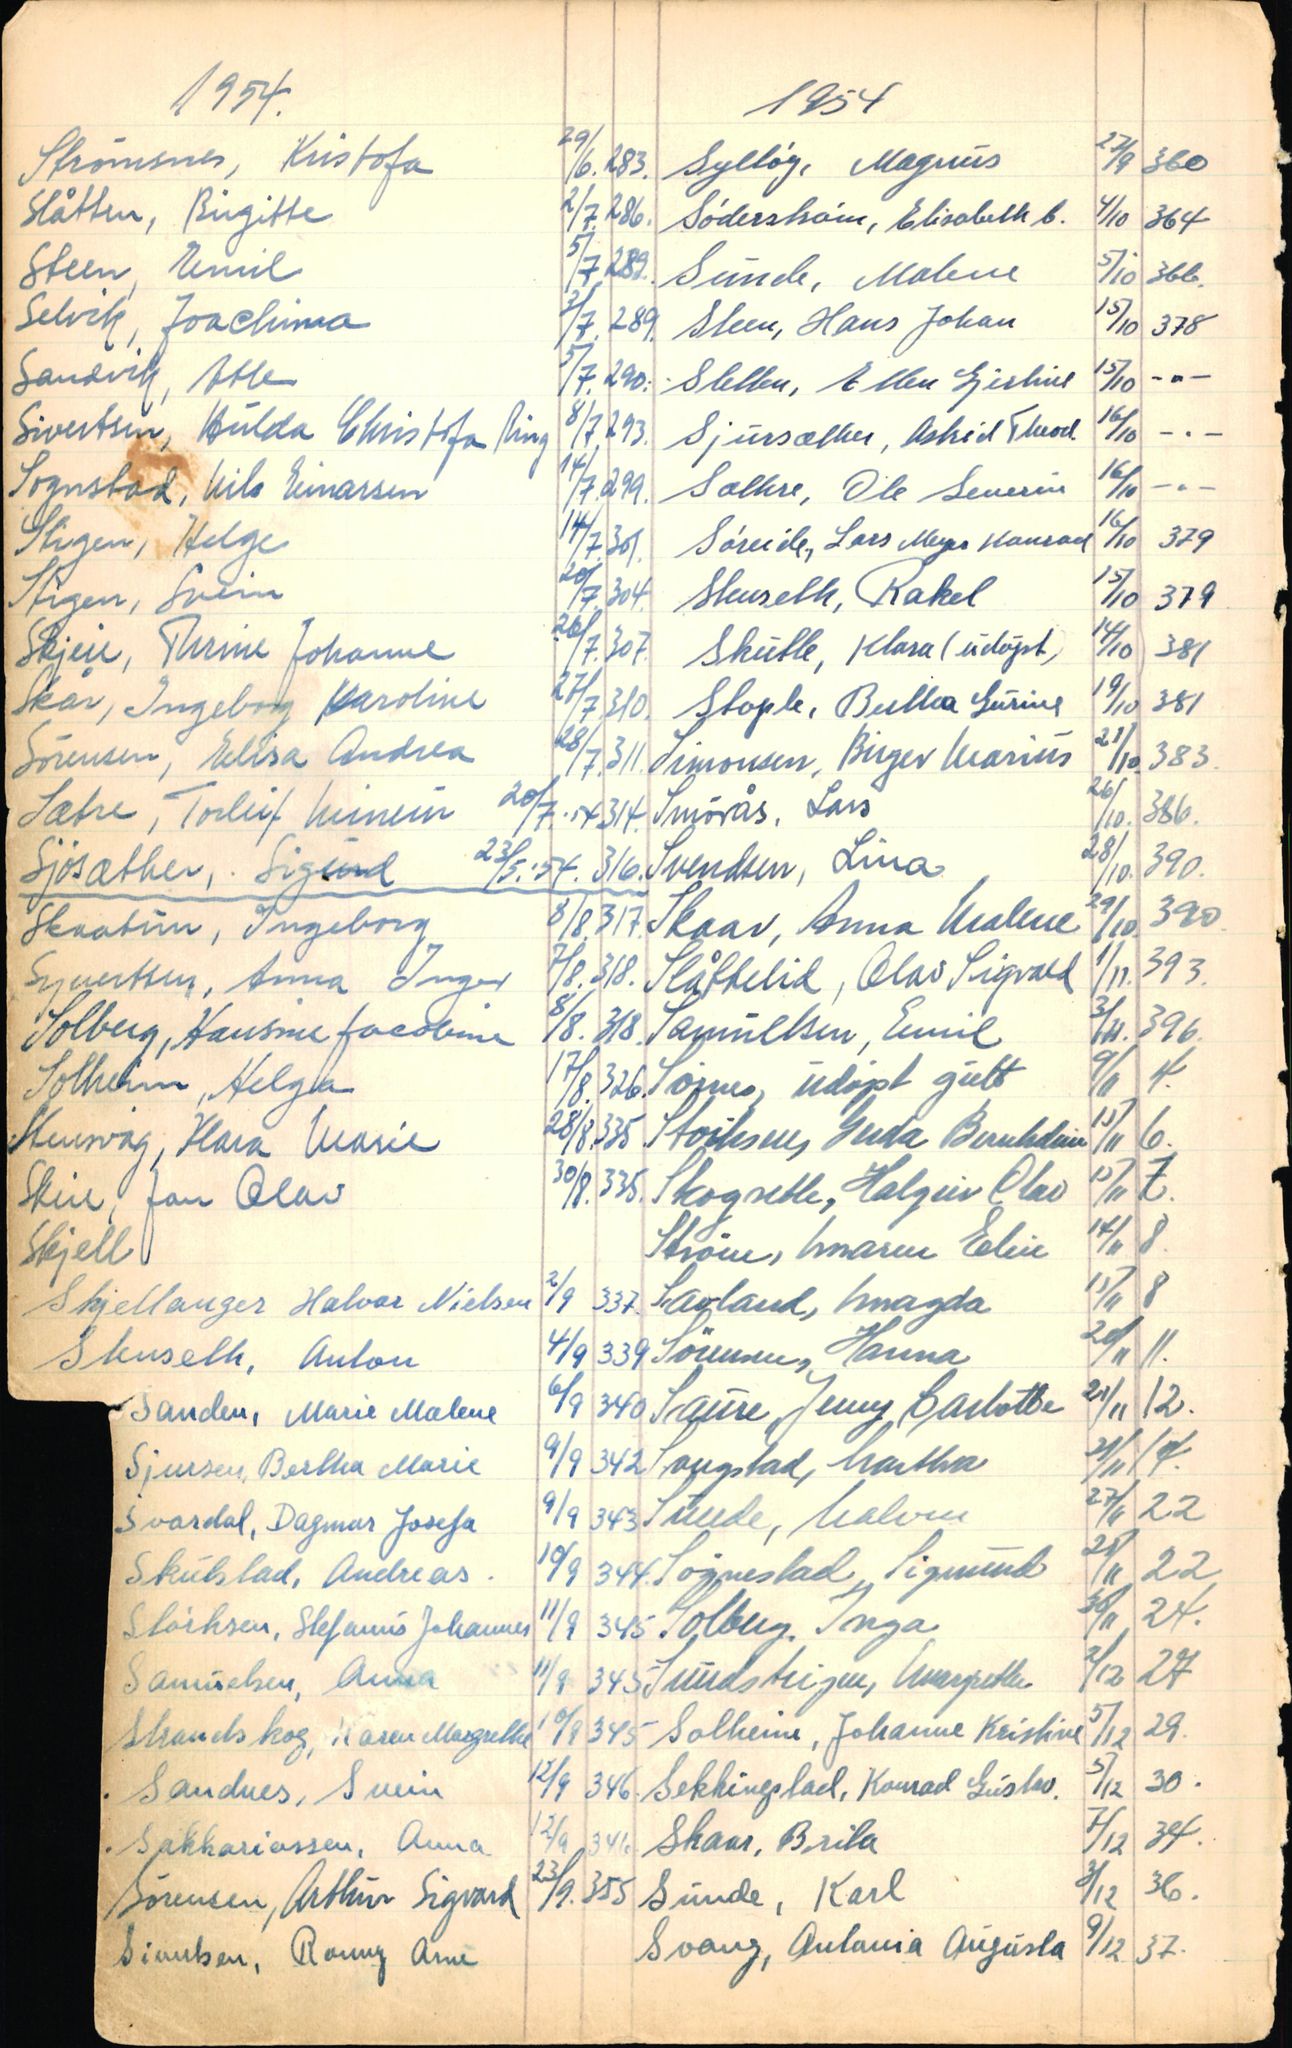 1954.
Strömsnes, Kristofa 29/6. 283.
Slåtten, Birgitte 2/7. 286.
Steen, Emil 5/7 289.
Selvik, Joachima 3/7. 289.
Sandvik, Atle 5/7. 290.
Sivertsen, Hulda Christofa Ring 8/7. 293.
Sognstad, Nils Einarsen 14/7. 299.
Stigen, Helge 14/7. 301.
Stigen, Svein 20/7. 304.
Skjeie, Thrine Johanne 26/7. 307.
Skår, Ingeborg Karoline 27/7. 310.
Sörensen, Elisa Andrea 28/7. 311.
Sætre, Torleif 20/7.-54 314.
Sjösæther, Sigurd 23/5.-54. 316.
Skaatun, Ingeborg 8/8. 317.
Syvertsen, Anna Inger 7/8. 318.
Solberg, Hansine Jacobine 8/8. 318.
Solheim, Helga 17/8. 326.
Stensvåg, Klara Marie 28/8. 335
Skeie, Jan Olav 30/8. 335.
Skjell
Skjellanger Halvor Nielsen 2/9 337.
Stenseth, Anton 4/9 339
Sanden, Marie Malene 6/9 340
Sjursen, Bertha Marie 9/9 342
Svardal, Dagmar Josefa 9/9 343
Skulstad, Andreas. 10/9 344.
Störksen, Stefanus Johannes 11/9 345
Samuelsen, Anna 11/9 345
Strandskog, Karen Margrethe 10/9 345
Sandnes, Svein 12/9 346.
Sakkariassen, Anna 12/9 346.
Sörensen, Arthur Sigvard 23/9. 355
Sivertsen, Ronny Arne
1954
Syltöy, Magnus 27/9 360
Söderström, Elisabeth C. 4/10 364
Sunde, Malene 5/10 366.
Steen, Hans Johan 15/10 378
Sletten, Ellen Gjertine 15/10 -"-
Sjursæther, Astrid Theod. 16/10 -"-
Sælhre, Ole Severin 16/10 -"-
Söreide, Lars Meyer Konrad 16/10 379
Stenseth, Rakel 15/10 379
Skutle, Klara (udöpt) 14/10 381
Stople, Bertha Gurine 19/10 381
Simonsen, Birger Marius 21/10. 383.
Smörås, Lars 26/10. 386.
Svendsen, Lina 28/10. 390.
Skaar, Anna Malene 29/10. 390.
Slåttelid, Olav Sigvald 1/11. 393.
Samuelsen, Emil 3/11. 396.
udöpt gutt 9/11 4.
Störksen, Gerda 13/11 6.
Skogseth, Halgeir Olav 13/11 7.
Ström, Maren Elin 14/11 8.
Savland, Magda 15/11 8
Sörensen, Hanna 20/11 11.
Saure, Jenny Charlotte 21/11 12.
Songstad, Martha 21/11 14.
Sunde, 27/11 22
Sognestad, Sigmund 28/11 22
Solberg, Inga 30/11 24.
Margrethe 2/12 27
Solheim, Johanne Kristine 5/12 29.
Sekkingstad, Konrad Gustav. 5/12 30.
Skaar, Brita 7/12 34.
Sunde, Karl 8/12 36.
Svang, Antonia Augusta 9/12 37.